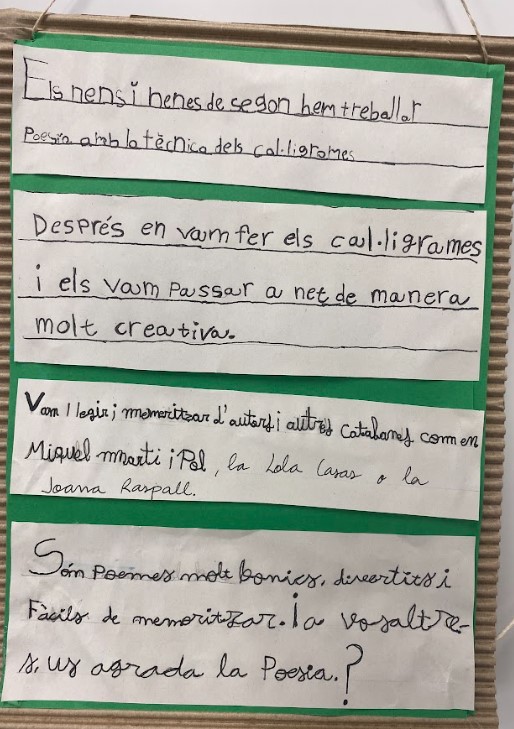 Els nens i nenes de segon hem treballar
Poesia amb la tècnica dels cal·ligromes
Després en vam fer els cal·ligrames
i els vam passar a net de manera
molt creativa.
Vam llegir i memeritzar d'autors i autres Catalanes com en
Miquel marti i Pol, la Lola Casas o la
Joana Raspall.
Són Poemes molt bonics, diveertits i
Fàcils de memoritzar. I a vosaltre-
s, us agrada la Poesia.?